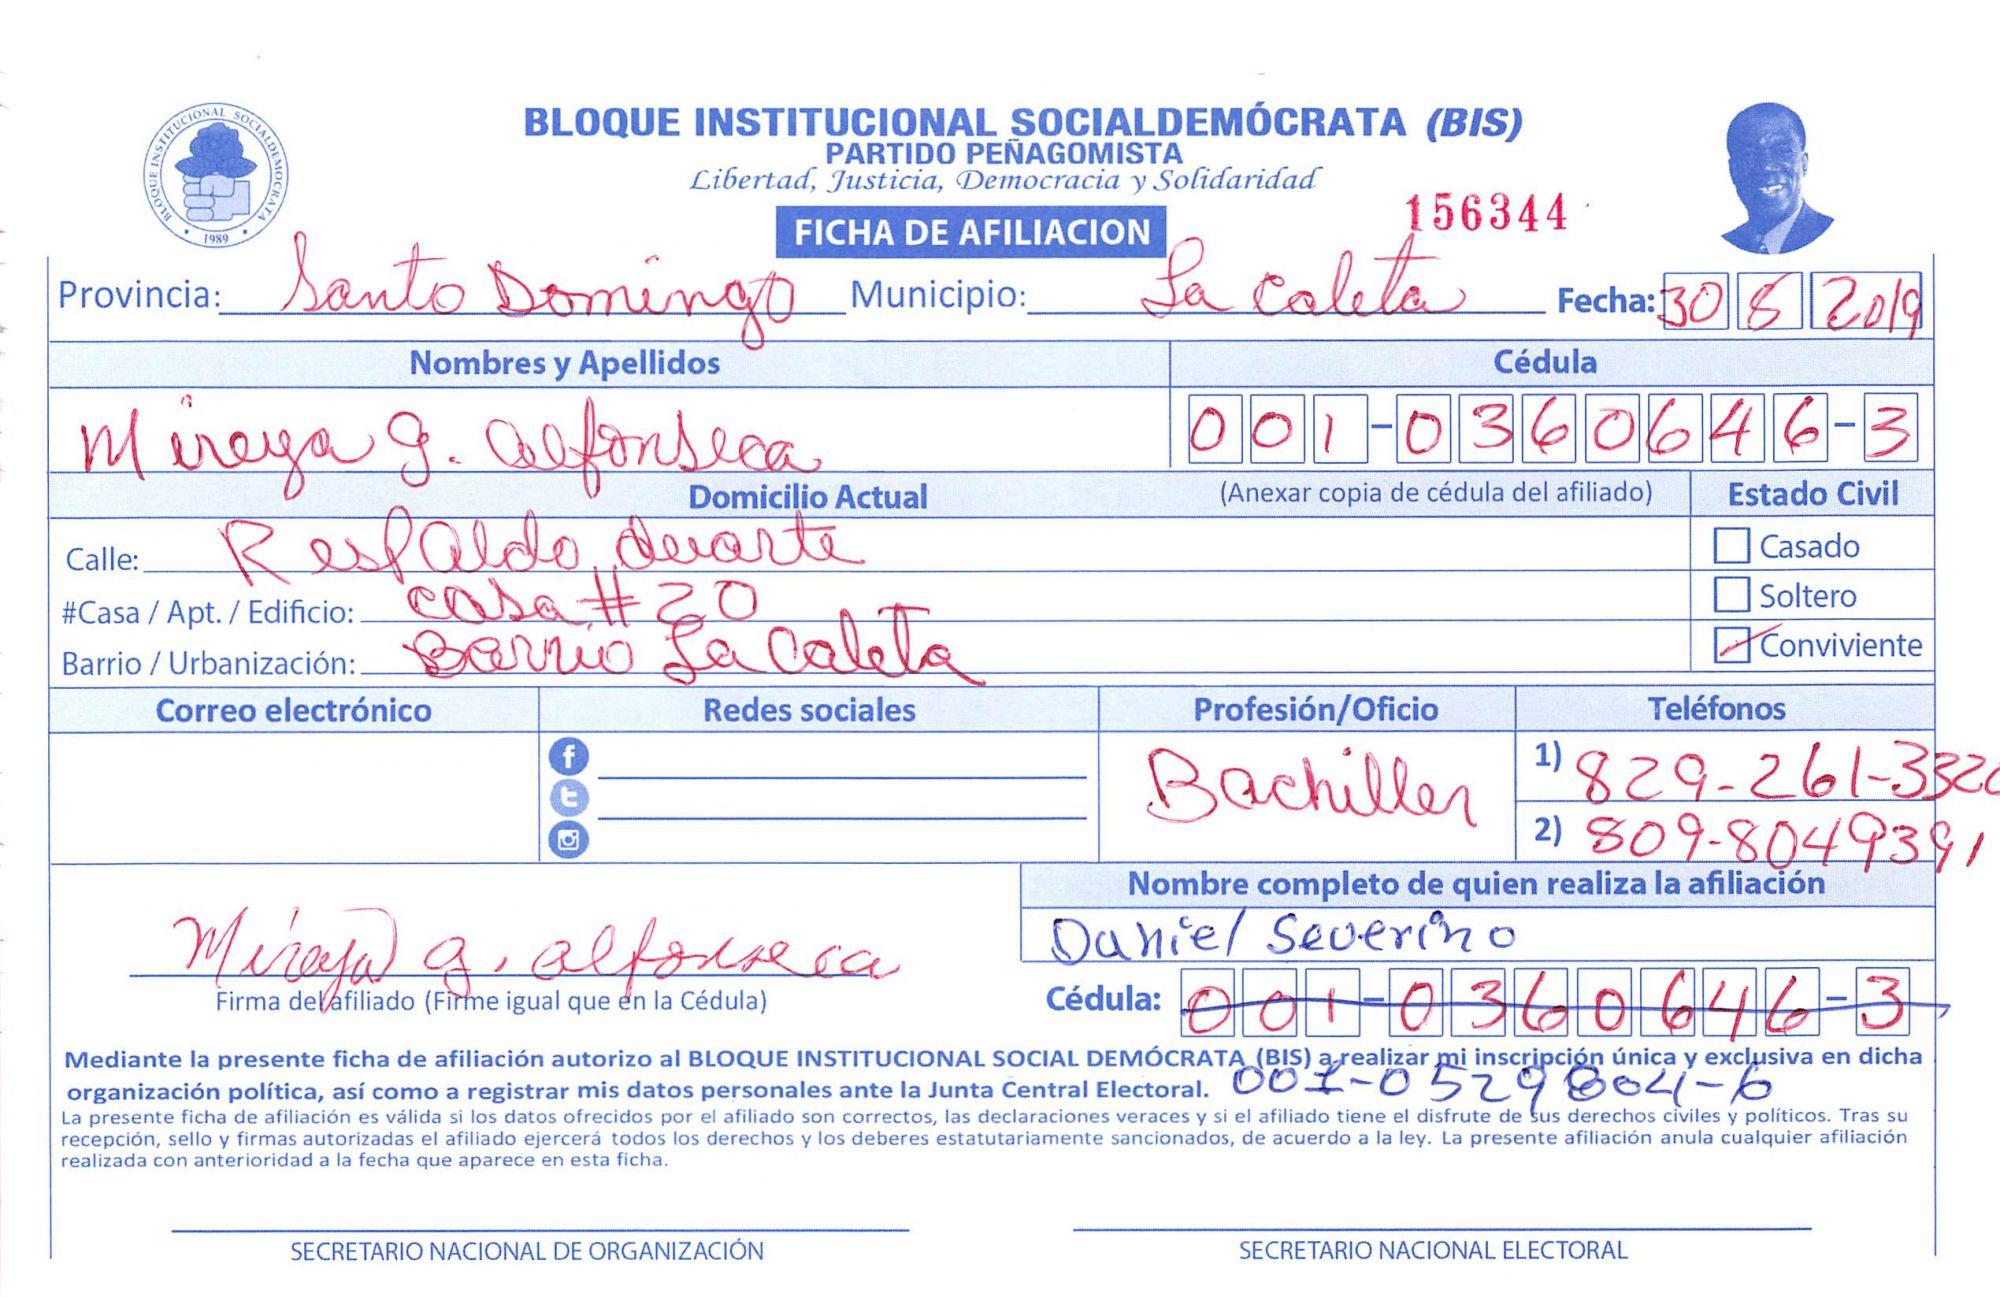 BLOQUE INSTITUCIONAL SOCIALDEMÓCRATA (BIS)
PARTIDO PEÑAGOMISTA
Libertad, Justicia, Democracia y Solidaridad
BLOQUE INSTITUCIONAL SOCIALDEMOCRATA
1989
156344
FICHA DE AFILIACION
Provincia: Santo Domingo Municipio: La Caleta Fecha: 30 8 2019
Nombres y Apellidos Cédula
Mireya g. alfonseca 001-0360646-3
Domicilio Actual (Anexar copia de cédula del afiliado) Estado Civil
Calle: Respaldo duarte Casado
#Casa / Apt. / Edificio: casa #20 Soltero
Barrio / Urbanización: Barrio La Caleta Conviviente
Correo electrónico Redes sociales Profesión/Oficio Teléfonos
Bachiller 1) 829-261-332
2) 809-8049391
Nombre completo de quien realiza la afiliación
Daniel Severino
Mireya g. alfonseca
Firma del afiliado (Firme igual que en la Cédula) Cédula: 001-0360646-3
Mediante la presente ficha de afiliación autorizo al BLOQUE INSTITUCIONAL SOCIAL DEMÓCRATA (BIS) a realizar mi inscripción única y exclusiva en dicha
organización política, así como a registrar mis datos personales ante la Junta Central Electoral. 001-0529804-6
La presente ficha de afiliación es válida si los datos ofrecidos por el afiliado son correctos, las declaraciones veraces y si el afiliado tiene el disfrute de sus derechos civiles y políticos. Tras su
recepción, sello y firmas autorizadas el afiliado ejercerá todos los derechos y los deberes estatutariamente sancionados, de acuerdo a la ley. La presente afiliación anula cualquier afiliación
realizada con anterioridad a la fecha que aparece en esta ficha.
SECRETARIO NACIONAL DE ORGANIZACIÓN SECRETARIO NACIONAL ELECTORAL